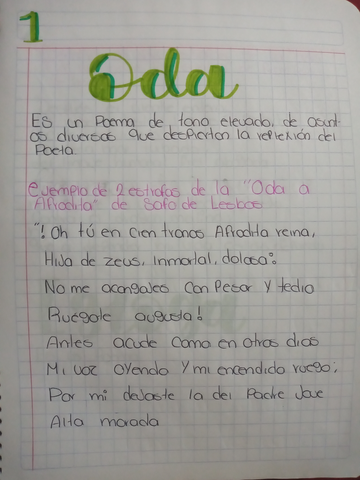 1
Oda
Es un Poema de tono elevado, de asunt
os diversos que despierton la reflexión del
Poeta.
Ejemplo de 2 estrofas de la "Oda a
Afrodita" de Safo de Lesbos
"! Oh tú en cien tronos Afrodita reina,
Hija de zeus, inmortal, dolosa:
No me acongojes con Pesar y tedio
Ruégote augusta!
Antes acude como en otros días
Mi voz oyendo y mi encendido ruego;
Por mi dejaste la del Padre Jove
Alta morada